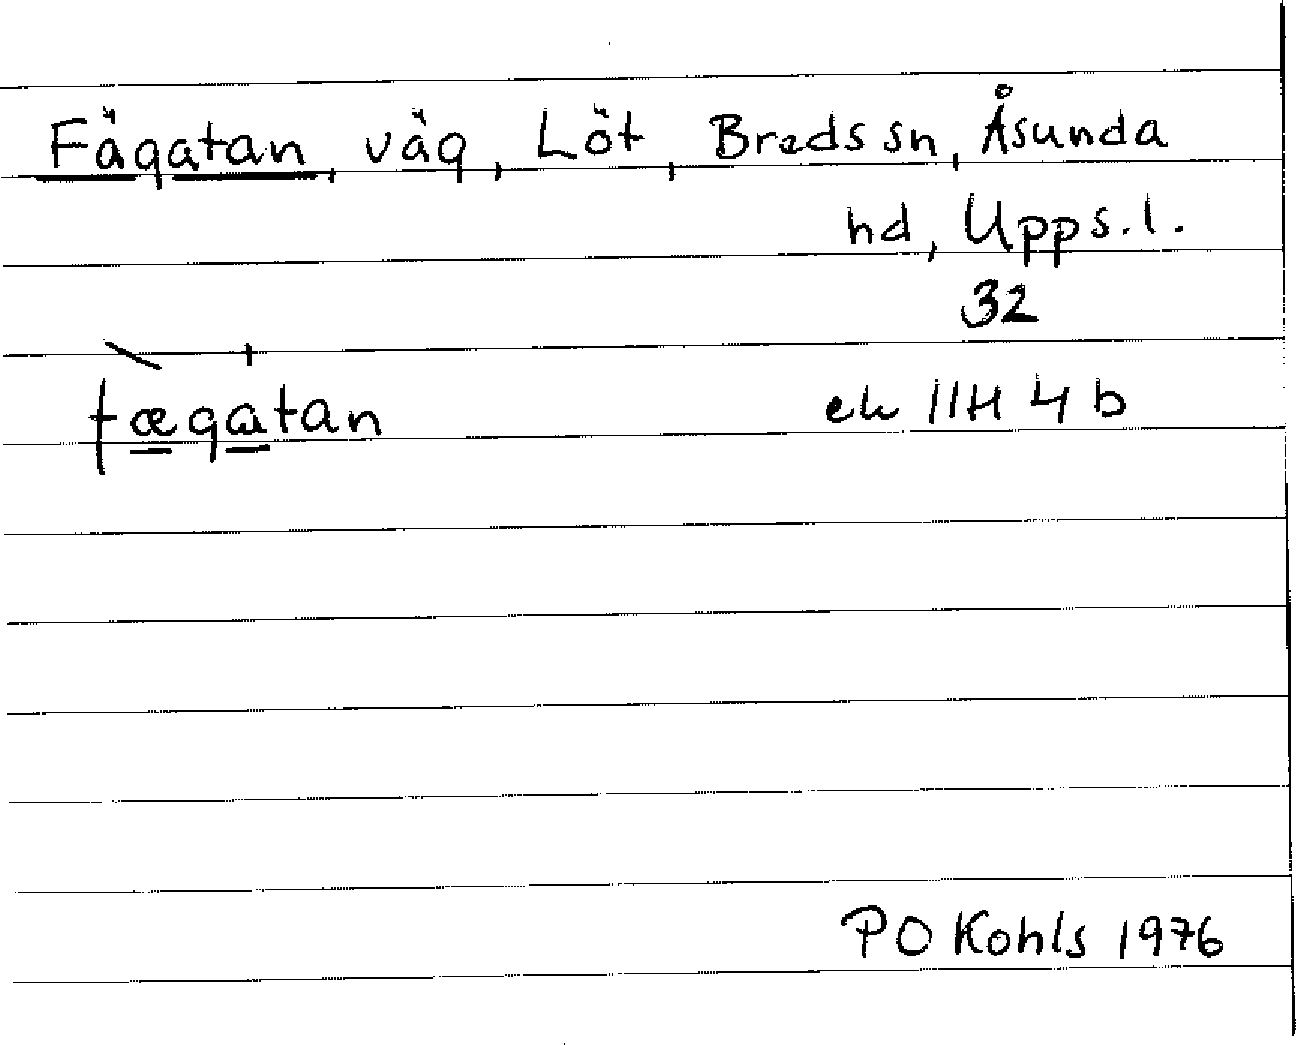 Fägatan, väg, Löt, Breds sn, Åsunda
hd, Upps.l.
32
fægatan ek 11H 4 b
PO Kohls 1976